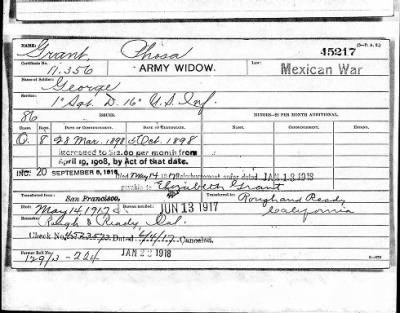 NAME: Grant, Phosa
(3—P. A. 2.)
45217
Certificate No. 11.356
ARMY WIDOW.
Law: Mexican War
Name of Soldier: George
Service: 1st Sgt. D. 16" U.S. Inf.
86
ISSUE.
MINORS—$2 PER MONTH ADDITIONAL
CLASS. RATE. DATE OF COMMENCEMENT. DATE OF CERTIFICATE.
O. 8 28 Mar. 1898 5 Oct. 1898
Increased to $12.00 per month from
April 19, 1908, by Act of that date.
INC: 20 SEPTEMBER 8, 1916 Died May 14 1917 Reimbursement order dated JAN 18 1918
payable to Elizabeth Grant
Transferred from San Francisco, Transferred to Rough and Ready
Died May 14, 1917 Bureau notified, JUN 13 1917 California
Rough & Ready, Cal.
Check No. Dated 6/4/17 Canceled.
JAN 22 1918
Former Roll No. 129/3-224